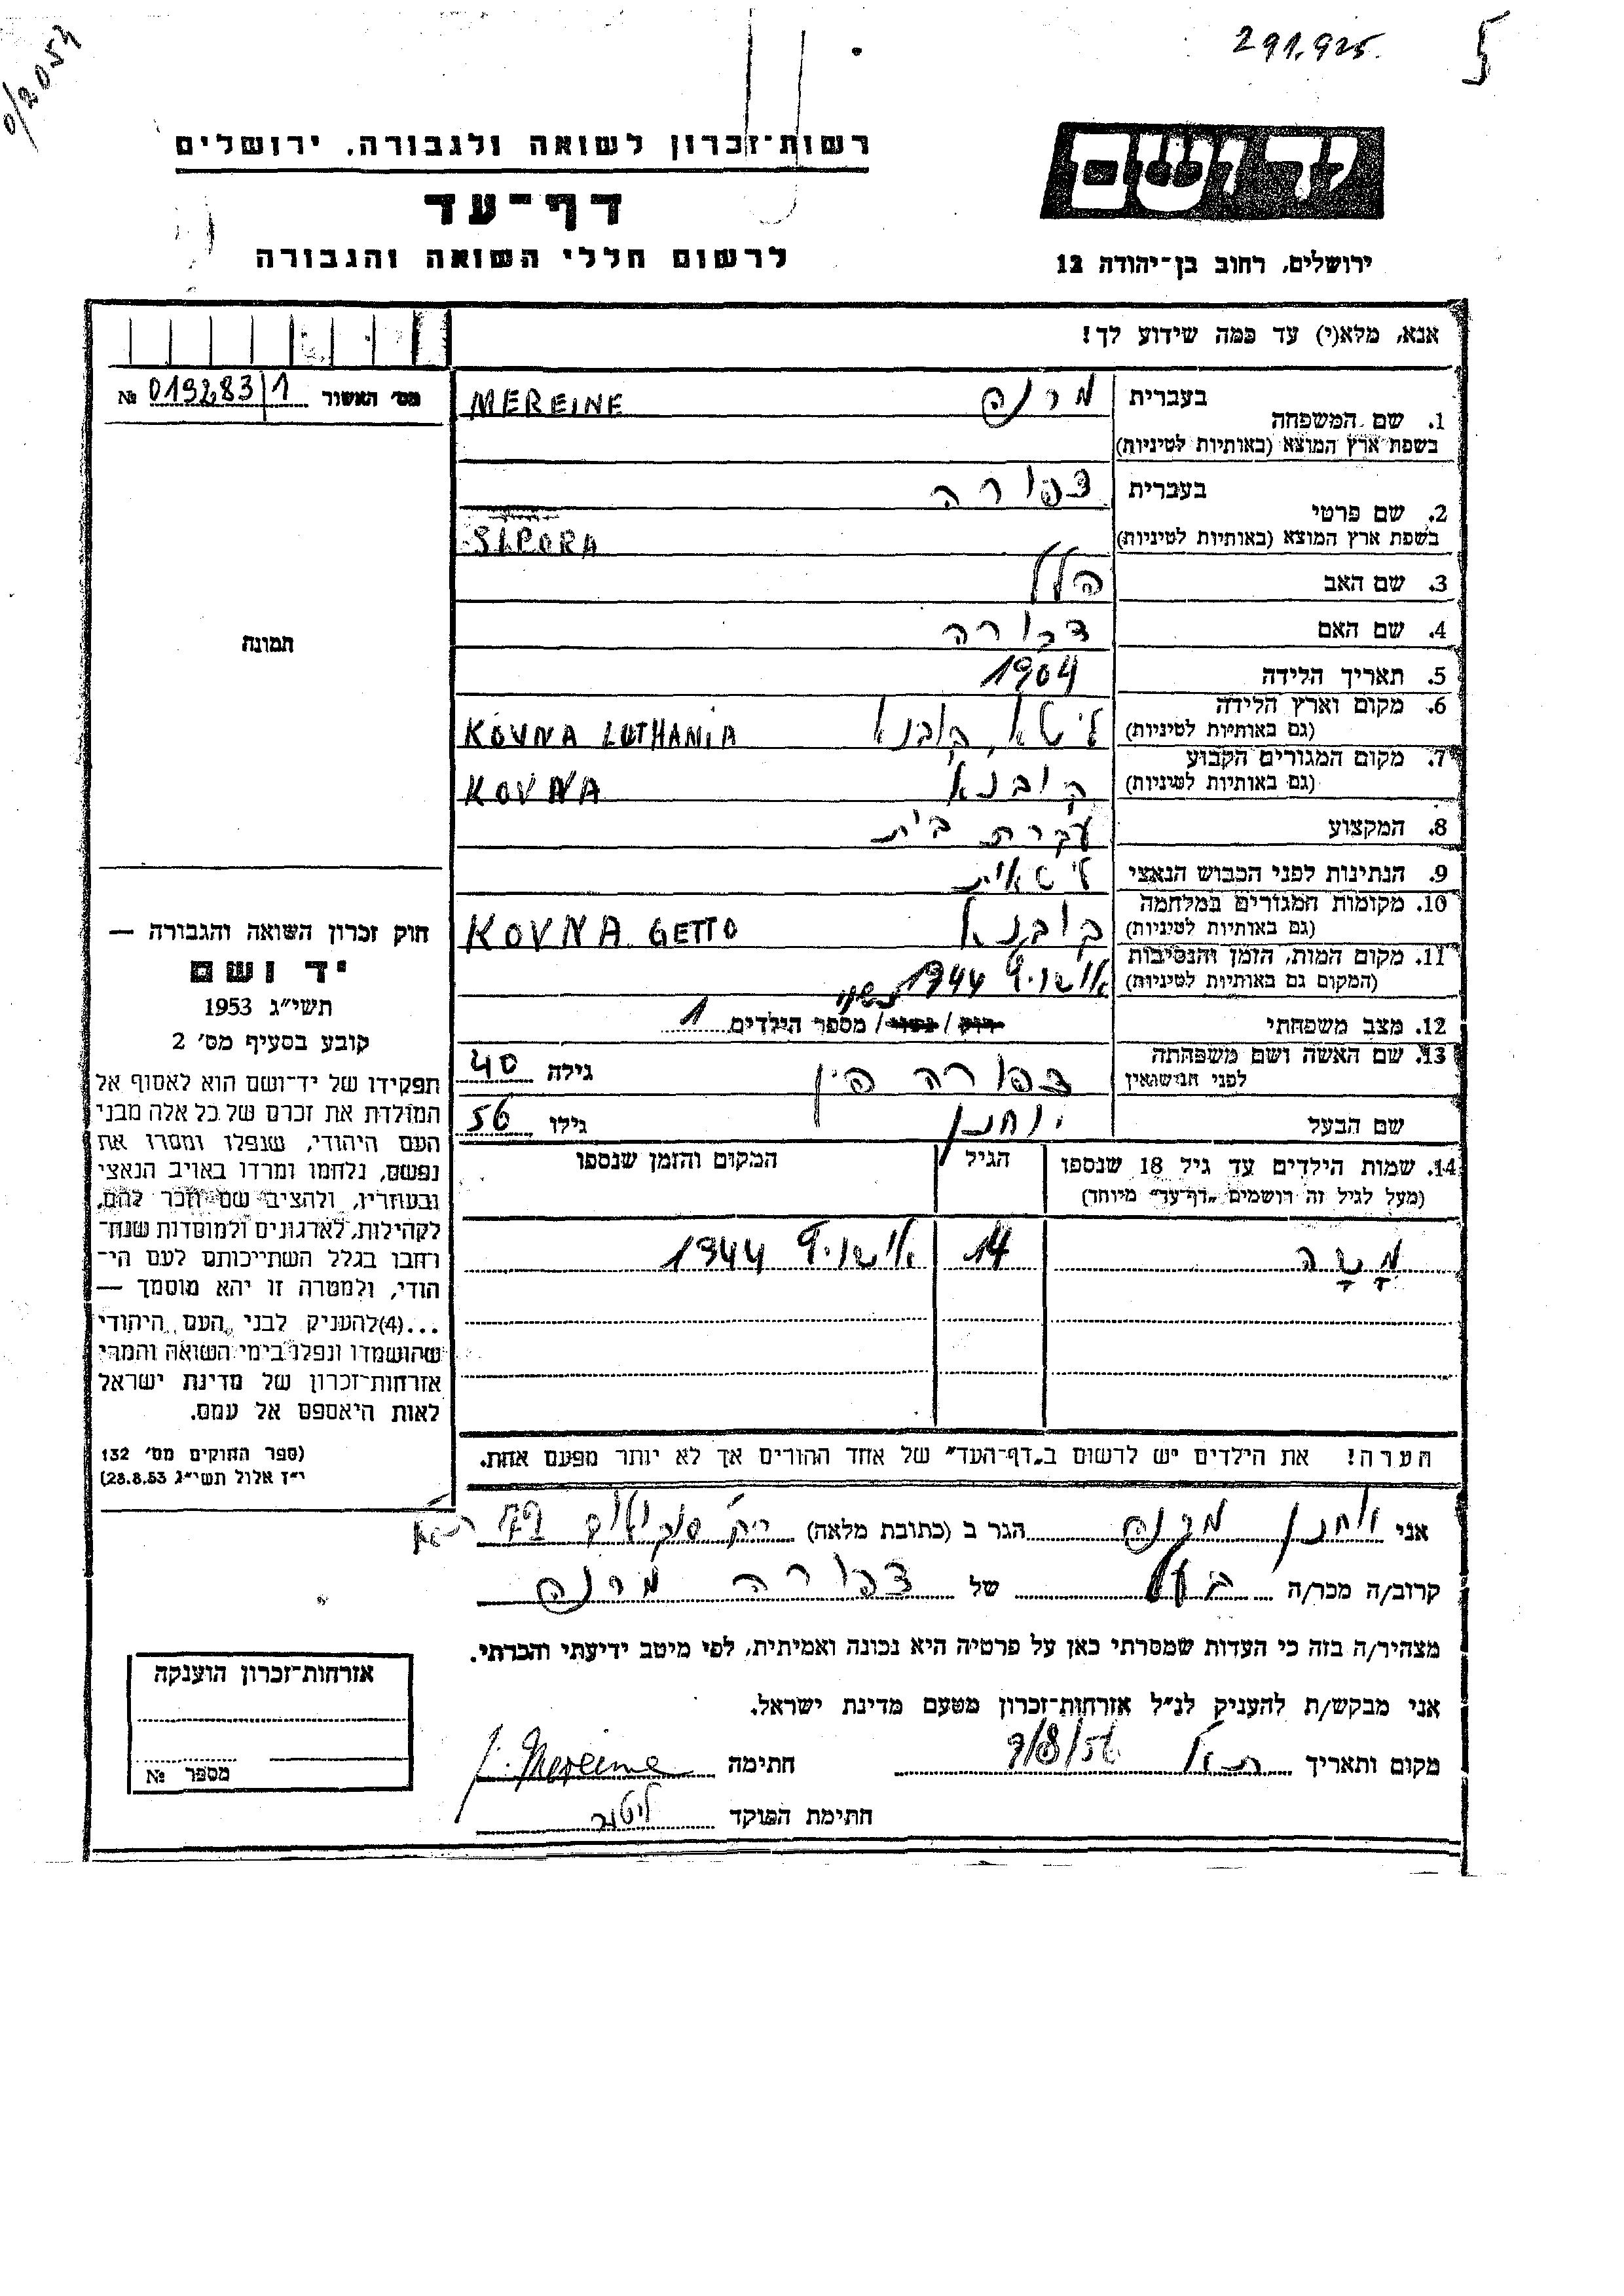 0/2054
291.925.
5
רשות־זכרון לשואה ולגבורה. ירושלים
דף־עד
לרשום חללי השואה והגבורה
יד ושם
ירושלים, רחוב בן־יהודה 12
אנא, מלא(י) עד כמה שידוע לך!
מס׳ האשור 019283/1 №
1. שם המשפחה
בעברית מרנה
בשפת ארץ המוצא (באותיות לטיניות) MEREINE
2. שם פרטי
בעברית צפורה
בשפת ארץ המוצא (באותיות לטיניות) SIPORA
3. שם האב הלל
4. שם האם דבורה
5. תאריך הלידה 1904
6. מקום וארץ הלידה ליטא, קובנא KOVNA LUTHANIA
(גם באותיות לטיניות)
7. מקום המגורים הקבוע קובנא KOVNA
(גם באותיות לטיניות)
8. המקצוע עקרת בית
9. הנתינות לפני הכבוש הנאצי ליטאית
10. מקומות המגורים במלחמה קובנא KOVNA GETTO
(גם באותיות לטיניות)
11. מקום המות, הזמן והנסיבות 1944
(המקום גם באותיות לטיניות)
12. מצב משפחתי רוק / נשוי / מספר הילדים 1
13. שם האשה ושם משפחתה
לפני הנישואין צפורה פין גילה 40
שם הבעל יוחנן גילו 56
14. שמות הילדים עד גיל 18 שנספו
(מעל לגיל זה רושמים „דף־עד״ מיוחד)
הגיל
המקום והזמן שנספו
מָשָה 14 1944
הערה! את הילדים יש לרשום ב„דף־העד״ של אחד ההורים אך לא יותר מפעם אחת.
תמונה
חוק זכרון השואה והגבורה —
יד ושם
תשי״ג 1953
קובע בסעיף מס׳ 2
תפקידו של יד־ושם הוא לאסוף אל
המולדת את זכרם של כל אלה מבני
העם היהודי, שנפלו ומסרו את
נפשם, נלחמו ומרדו באויב הנאצי
ובעוזריו, ולהציב שם וזכר להם,
לקהילות, לארגונים ולמוסדות שנח־
רבו בגלל השתייכותם לעם הי־
הודי, ולמטרה זו יהא מוסמך —
...(4)להעניק לבני העם היהודי
שהושמדו ונפלו בימי השואה והמרי
אזרחות־זכרון של מדינת ישראל
לאות היאספם אל עמם.
(ספר החוקים מס׳ 132
י״ז אלול תשי״ג 28.8.53)
אני יוחנן מרנה הגר ב (כתובת מלאה)
קרוב/ה מכר/ה בעל של צפורה מרנה
מצהיר/ה בזה כי העדות שמסרתי כאן על פרטיה היא נכונה ואמיתית, לפי מיטב ידיעתי והכרתי.
אני מבקש/ת להעניק לנ״ל אזרחות־זכרון מטעם מדינת ישראל.
מקום ותאריך ת״א 9/8/56 חתימה J. Mereine
חתימת הפוקד
אזרחות־זכרון הוענקה
מספר №